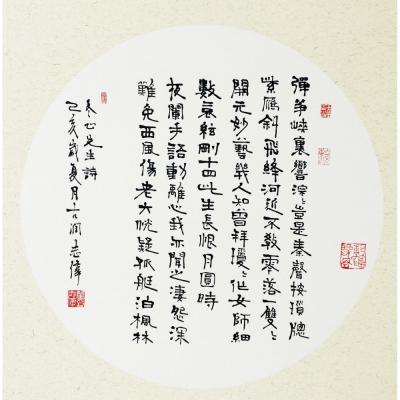 彈箏峽裏響淙〻豈是秦聲按瑣牕
紫雁斜飛絳河近不教零落一雙〻
開元妙藝幾人知曾拜瓊〻作女師細
數哀絃剛十四此生長恨月圓時
夜闌手語動離心我亦聞之淒怨深
難免西風傷老大恍疑孤艇泊楓林
冬心先生詩
己亥歲夏月古潤志偉